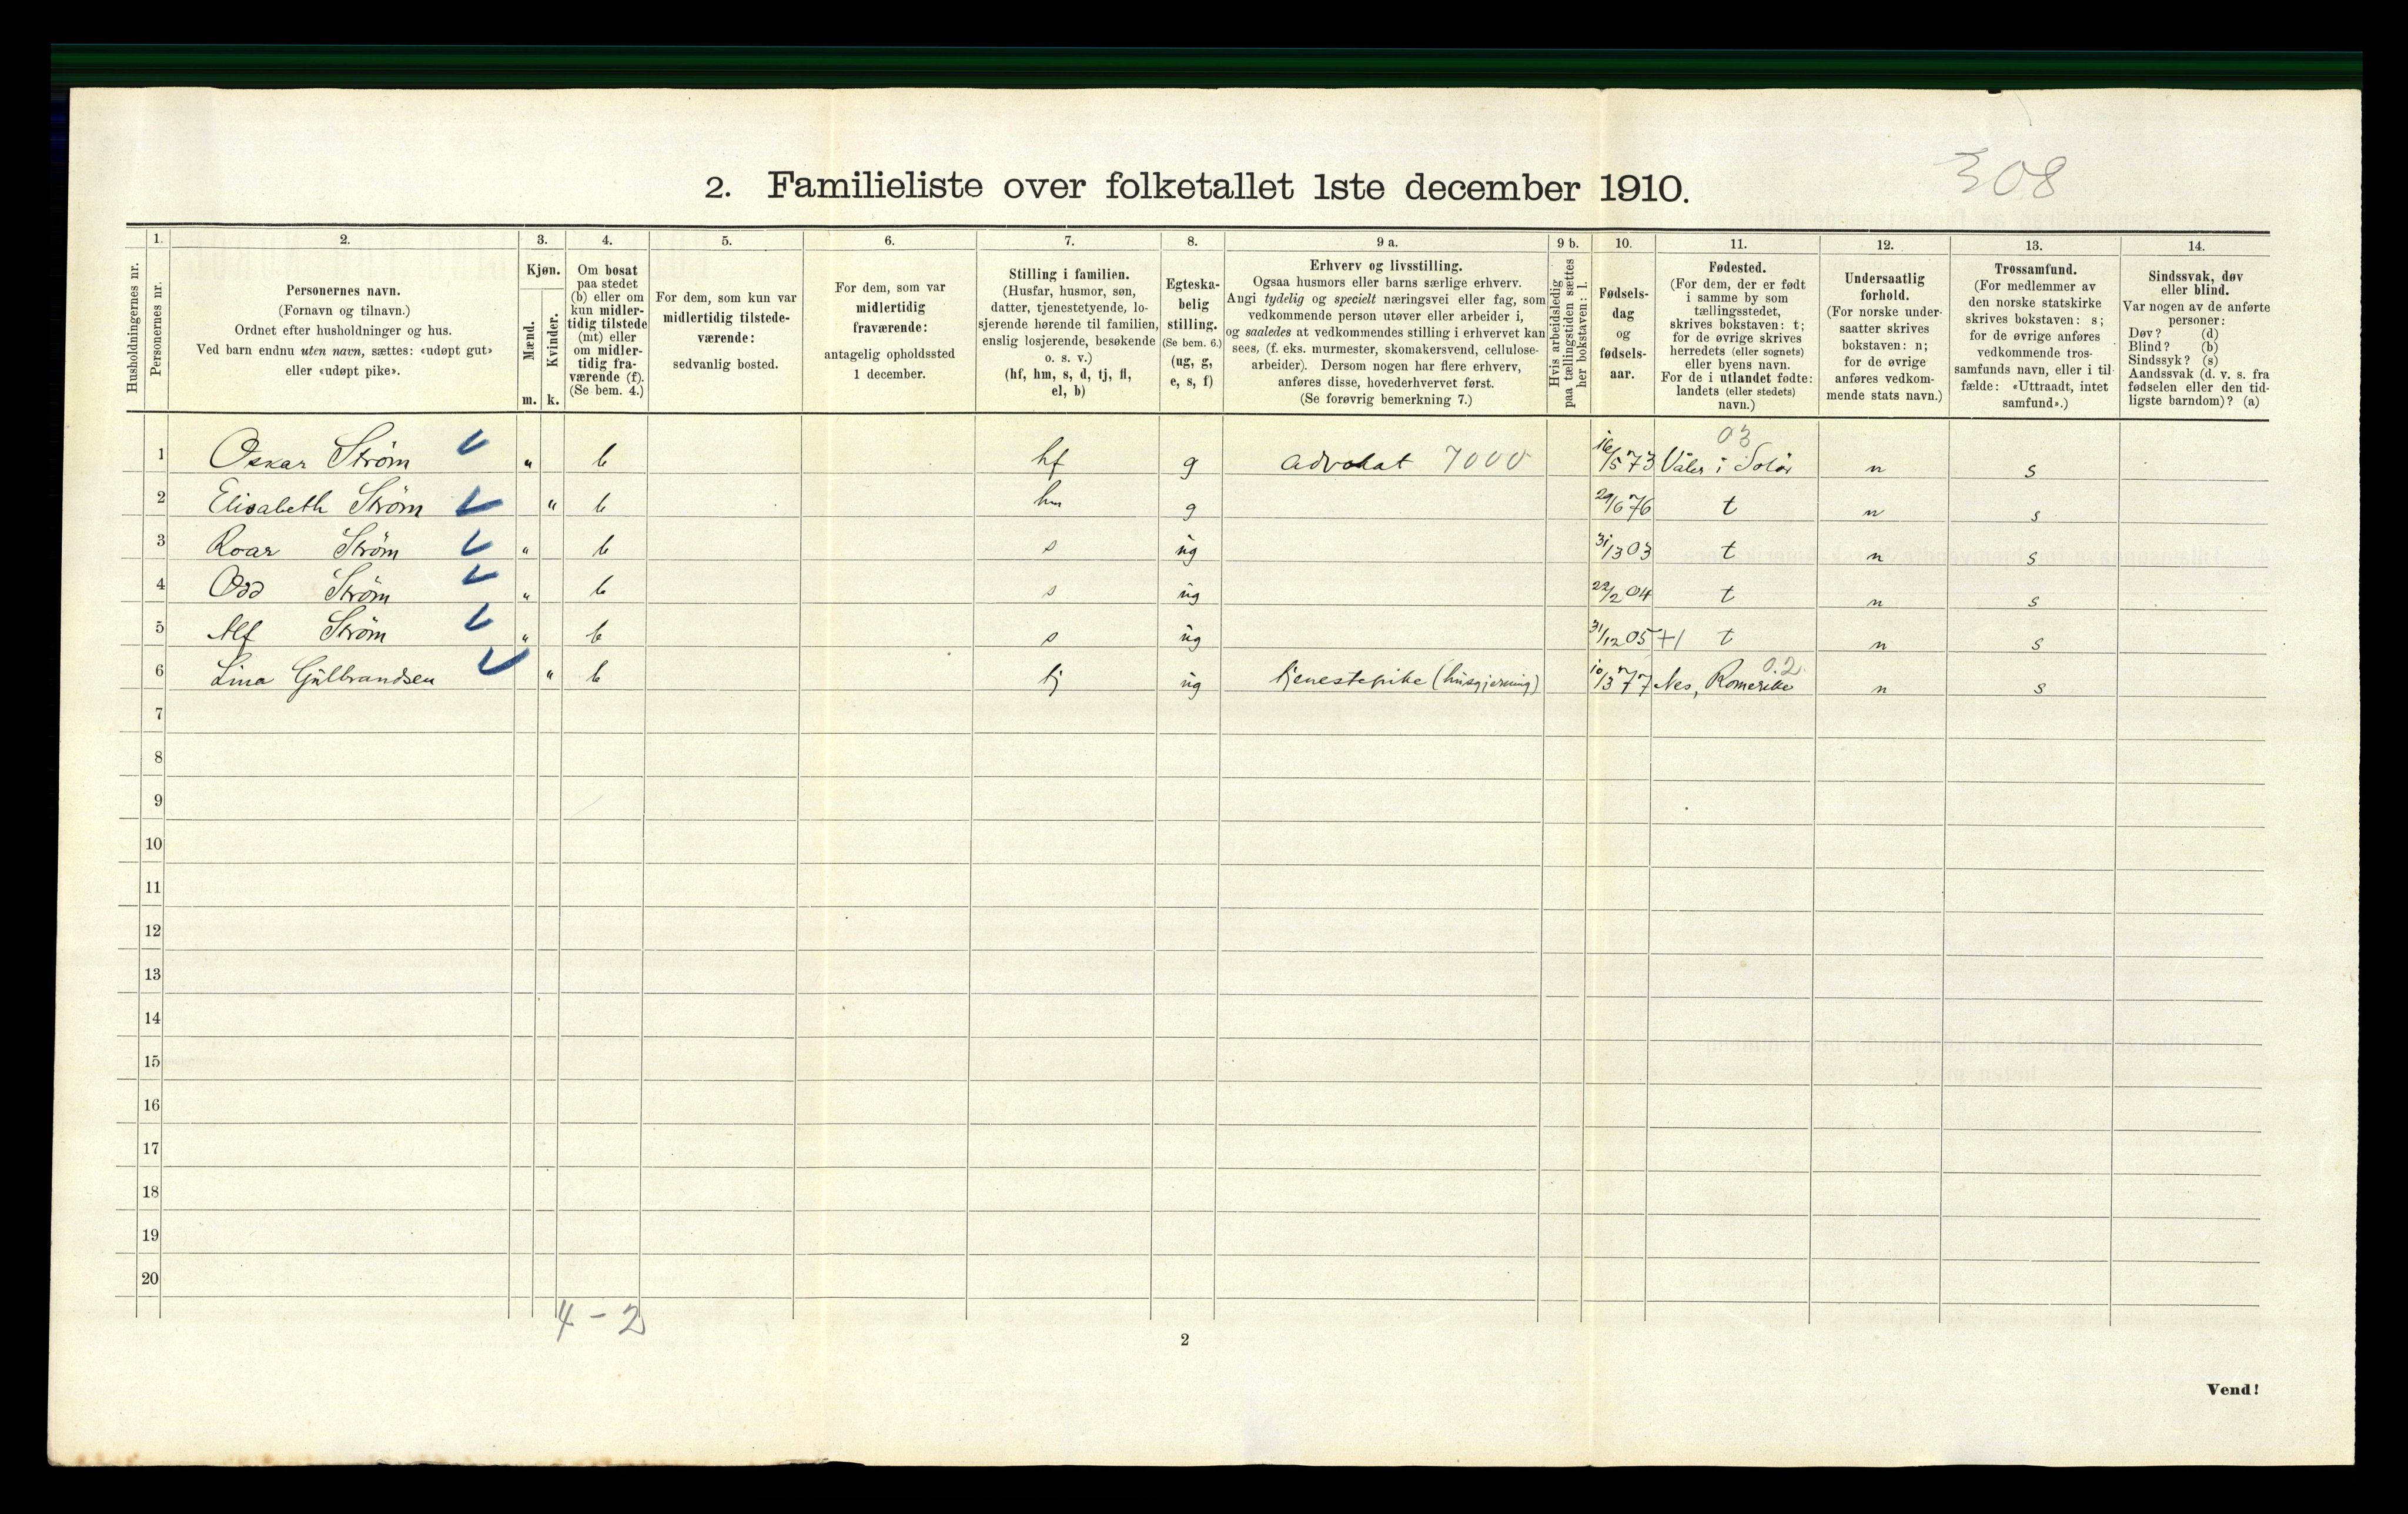 308
2. Familieliste over folketallet 1ste december 1910.
Husholdningernes nr.
1. Personernes nr.
2. Personernes navn.
(Fornavn og tilnavn.)
Ordnet efter husholdninger og hus.
Ved barn endnu uten navn, sættes: «udøpt gut»
eller «udøpt pike».
3. Kjøn.
Mænd. m.
Kvinder. k.
4. Om bosat
paa stedet
(b) eller om
kun midler-
tidig tilstede
(mt) eller
om midler-
tidig fra-
værende (f).
(Se bem. 4.)
5. For dem, som kun var
midlertidig tilstede-
værende:
sedvanlig bosted.
6. For dem, som var
midlertidig
fraværende:
antagelig opholdssted
1 december.
7. Stilling i familien.
(Husfar, husmor, søn,
datter, tjenestetyende, lo-
sjerende hørende til familien,
enslig losjerende, besøkende
o. s. v.)
(hf, hm, s, d, tj, fl,
el, b)
8. Egteska-
belig
stilling.
(Se bem. 6.)
(ug, g,
e, s, f)
9 a. Erhverv og livsstilling.
Ogsaa husmors eller barns særlige erhverv.
Angi tydelig og specielt næringsvei eller fag, som
vedkommende person utøver eller arbeider i,
og saaledes at vedkommendes stilling i erhvervet kan
sees, (f. eks. murmester, skomakersvend, cellulose-
arbeider). Dersom nogen har flere erhverv,
anføres disse, hovederhvervet først.
(Se forøvrig bemerkning 7.)
9 b. Hvis arbeidsledig
paa tællingstiden sættes
her bokstaven: l.
10. Fødsels-
dag
og
fødsels-
aar.
11. Fødested.
(For dem, der er født
i samme by som
tællingsstedet,
skrives bokstaven: t;
for de øvrige skrives
herredets (eller sognets)
eller byens navn.
For de i utlandet fødte:
landets (eller stedets)
navn.)
12. Undersaatlig
forhold.
(For norske under-
saatter skrives
bokstaven: n;
for de øvrige
anføres vedkom-
mende stats navn.)
13. Trossamfund.
(For medlemmer av
den norske statskirke
skrives bokstaven: s;
for de øvrige anføres
vedkommende tros-
samfunds navn, eller i til-
fælde: «Uttraadt, intet
samfund».)
14. Sindssvak, døv
eller blind.
Var nogen av de anførte
personer:
Døv? (d)
Blind? (b)
Sindssyk? (s)
Aandssvak (d. v. s. fra
fødselen eller den tid-
ligste barndom)? (a)
03
1 Oskar Strøm " b hf g advokat 7000 16/5 73 Våler i Solør n s
2 Elisabeth Strøm " b hm g 29/6 76 t n s
3 Roar Strøm " b s ug 31/3 03 t n s
4 Odd Strøm " b s ug 22/2 04 t n s
5 Alf Strøm " b s ug 31/12 05 +1 t n s
02
6 Lina Gulbrandsen " b tj ug tjenestepike (husgjerning) 10/3 77 Nes, Romerike n s
7
8
9
10
11
12
13
14
15
16
17
18
19
20
4 - 2
2
Vend!